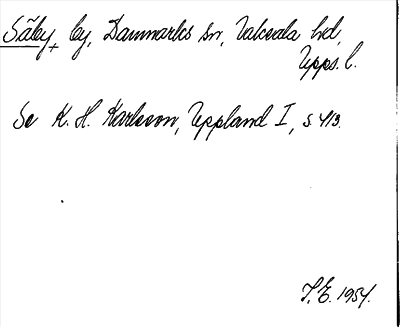 Säby, by, Danmarks sn, Vaksala hd,
Upps. l.
Se K. H. Karlsson, Uppland I, s 413.
S.E. 1954.